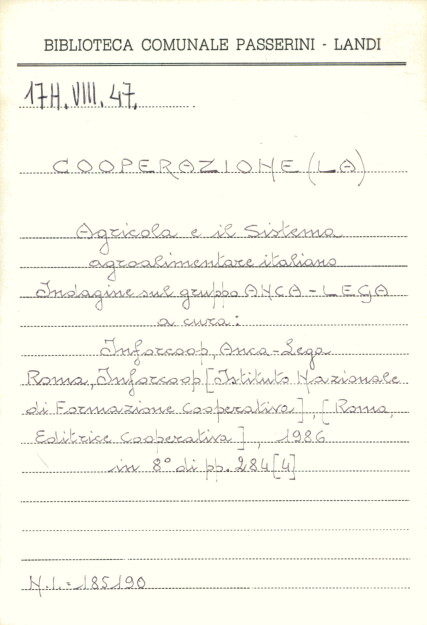 BIBLIOTECA COMUNALE PASSERINI - LANDI
17H.VIII.47.
COOPERAZIONE (LA)
Agricola e il Sistema
agroalimentare italiano
Indagine sul gruppo ANCA - LEGA
a cura:
Inforcoop, Anca-Lega
Roma, Inforcoop [Istituto Nazionale
di Formazione Cooperativa], [Roma,
Editrice Cooperativa], 1986
in 8° di pp. 284[4]
N.I.=185190